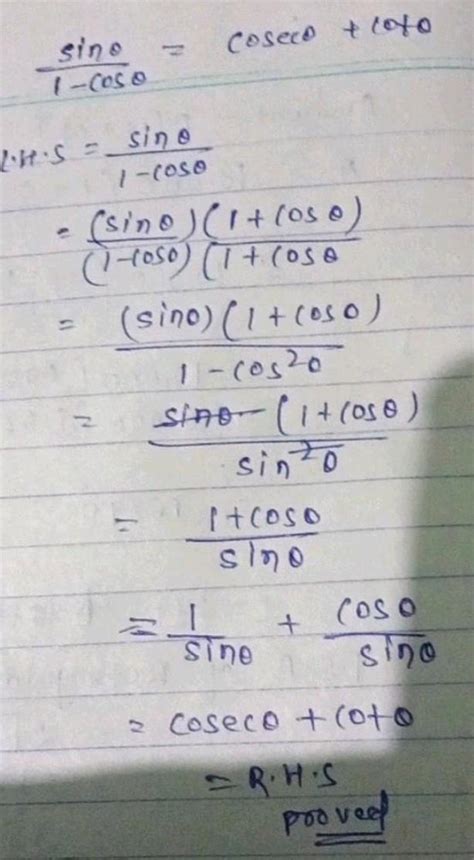 sinθ / 1-cosθ = cosecθ + cotθ
L.H.S = sinθ / 1-cosθ
= (sinθ)(1+cosθ) / (1-cosθ)(1+cosθ
= (sinθ)(1+cosθ) / 1-cos²θ
= sinθ (1+cosθ) / sin²θ
= 1+cosθ / sinθ
= 1/sinθ + cosθ/sinθ
= cosecθ + cotθ
= R.H.S
prooved